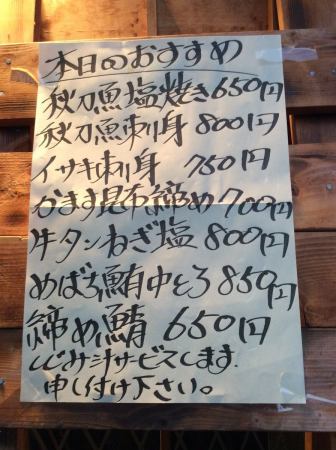 本日のおすすめ
秋刀魚塩焼き650円
秋刀魚刺身800円
イサキ刺身 750円
かます昆布締め700円
牛タンねぎ塩800円
めばち鮪中とろ850円
締め鯖 650円
しじみ汁サービスします.
申し付け下さい。